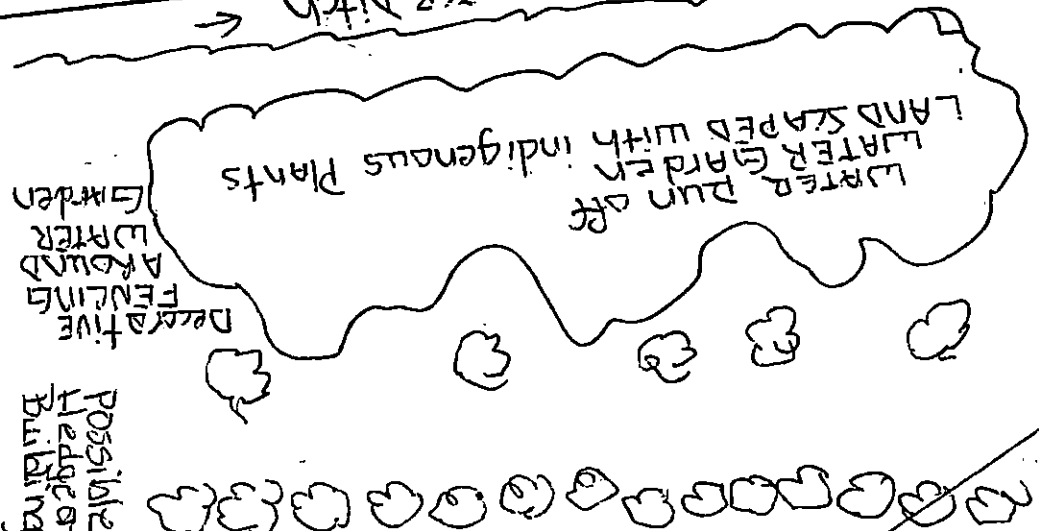 WATER RUN Off
WATER GARDEN
LANDSCAPED WITH indigenous Plants
Decorative
FENCING
AROUND
WATER
Garden
Possible
Hedge
Building
Ditch